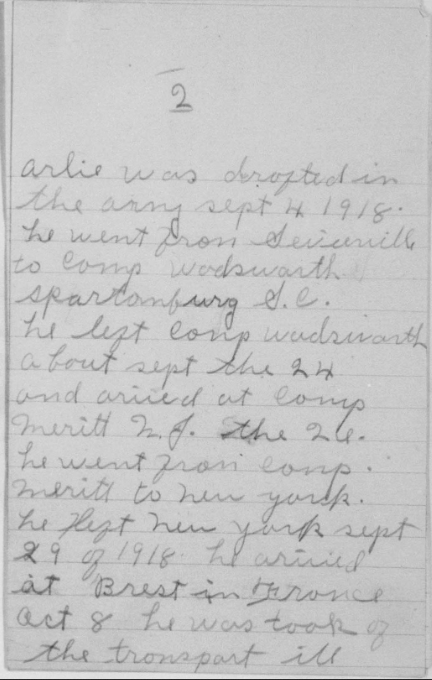 2
arlie was drofted in
the army sept 4 1918.
he went from Seiverville
to Comp wodswarth
spartonburg S.C.
he left Comp wodswarth
about sept the 24
and arived at Comp
Meritt N.J. the 26.
he went from Comp.
Meritt to new york.
he left new york sept
29 of 1918 he arived
at Brest in France
Oct 8 he was took of
the transpart ill